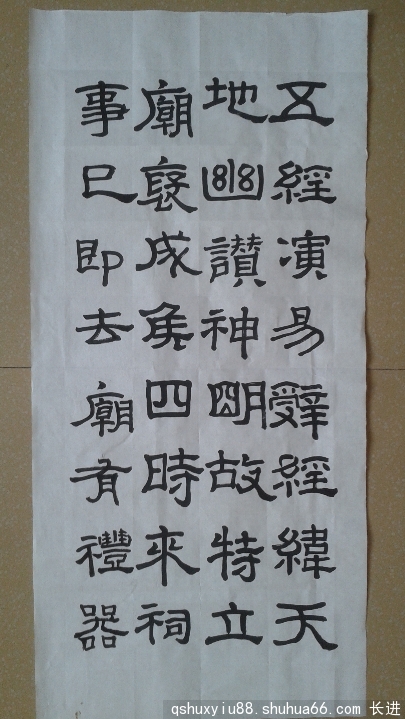 五經演易辭經緯天
地幽讃神明故特立
廟襃成侯四時來祠
事已即去廟有禮器
qshuxyiu88.shuhua66.com 长进